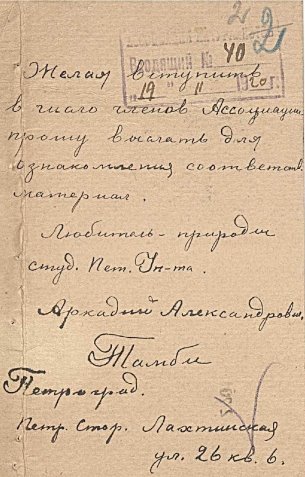 2 2
Входящий № 40
"19" 11 1920 г.
Желая вступить
в число членов Ассоциации
прошу выслать для
ознакомления соответств.
материал.
Любитель-природы
студ. Пет. Ун-та.
Аркадий Александрович
Тамби
Петроград.
Петр. Стор. Лахтинская
ул. 26 кв. 6.